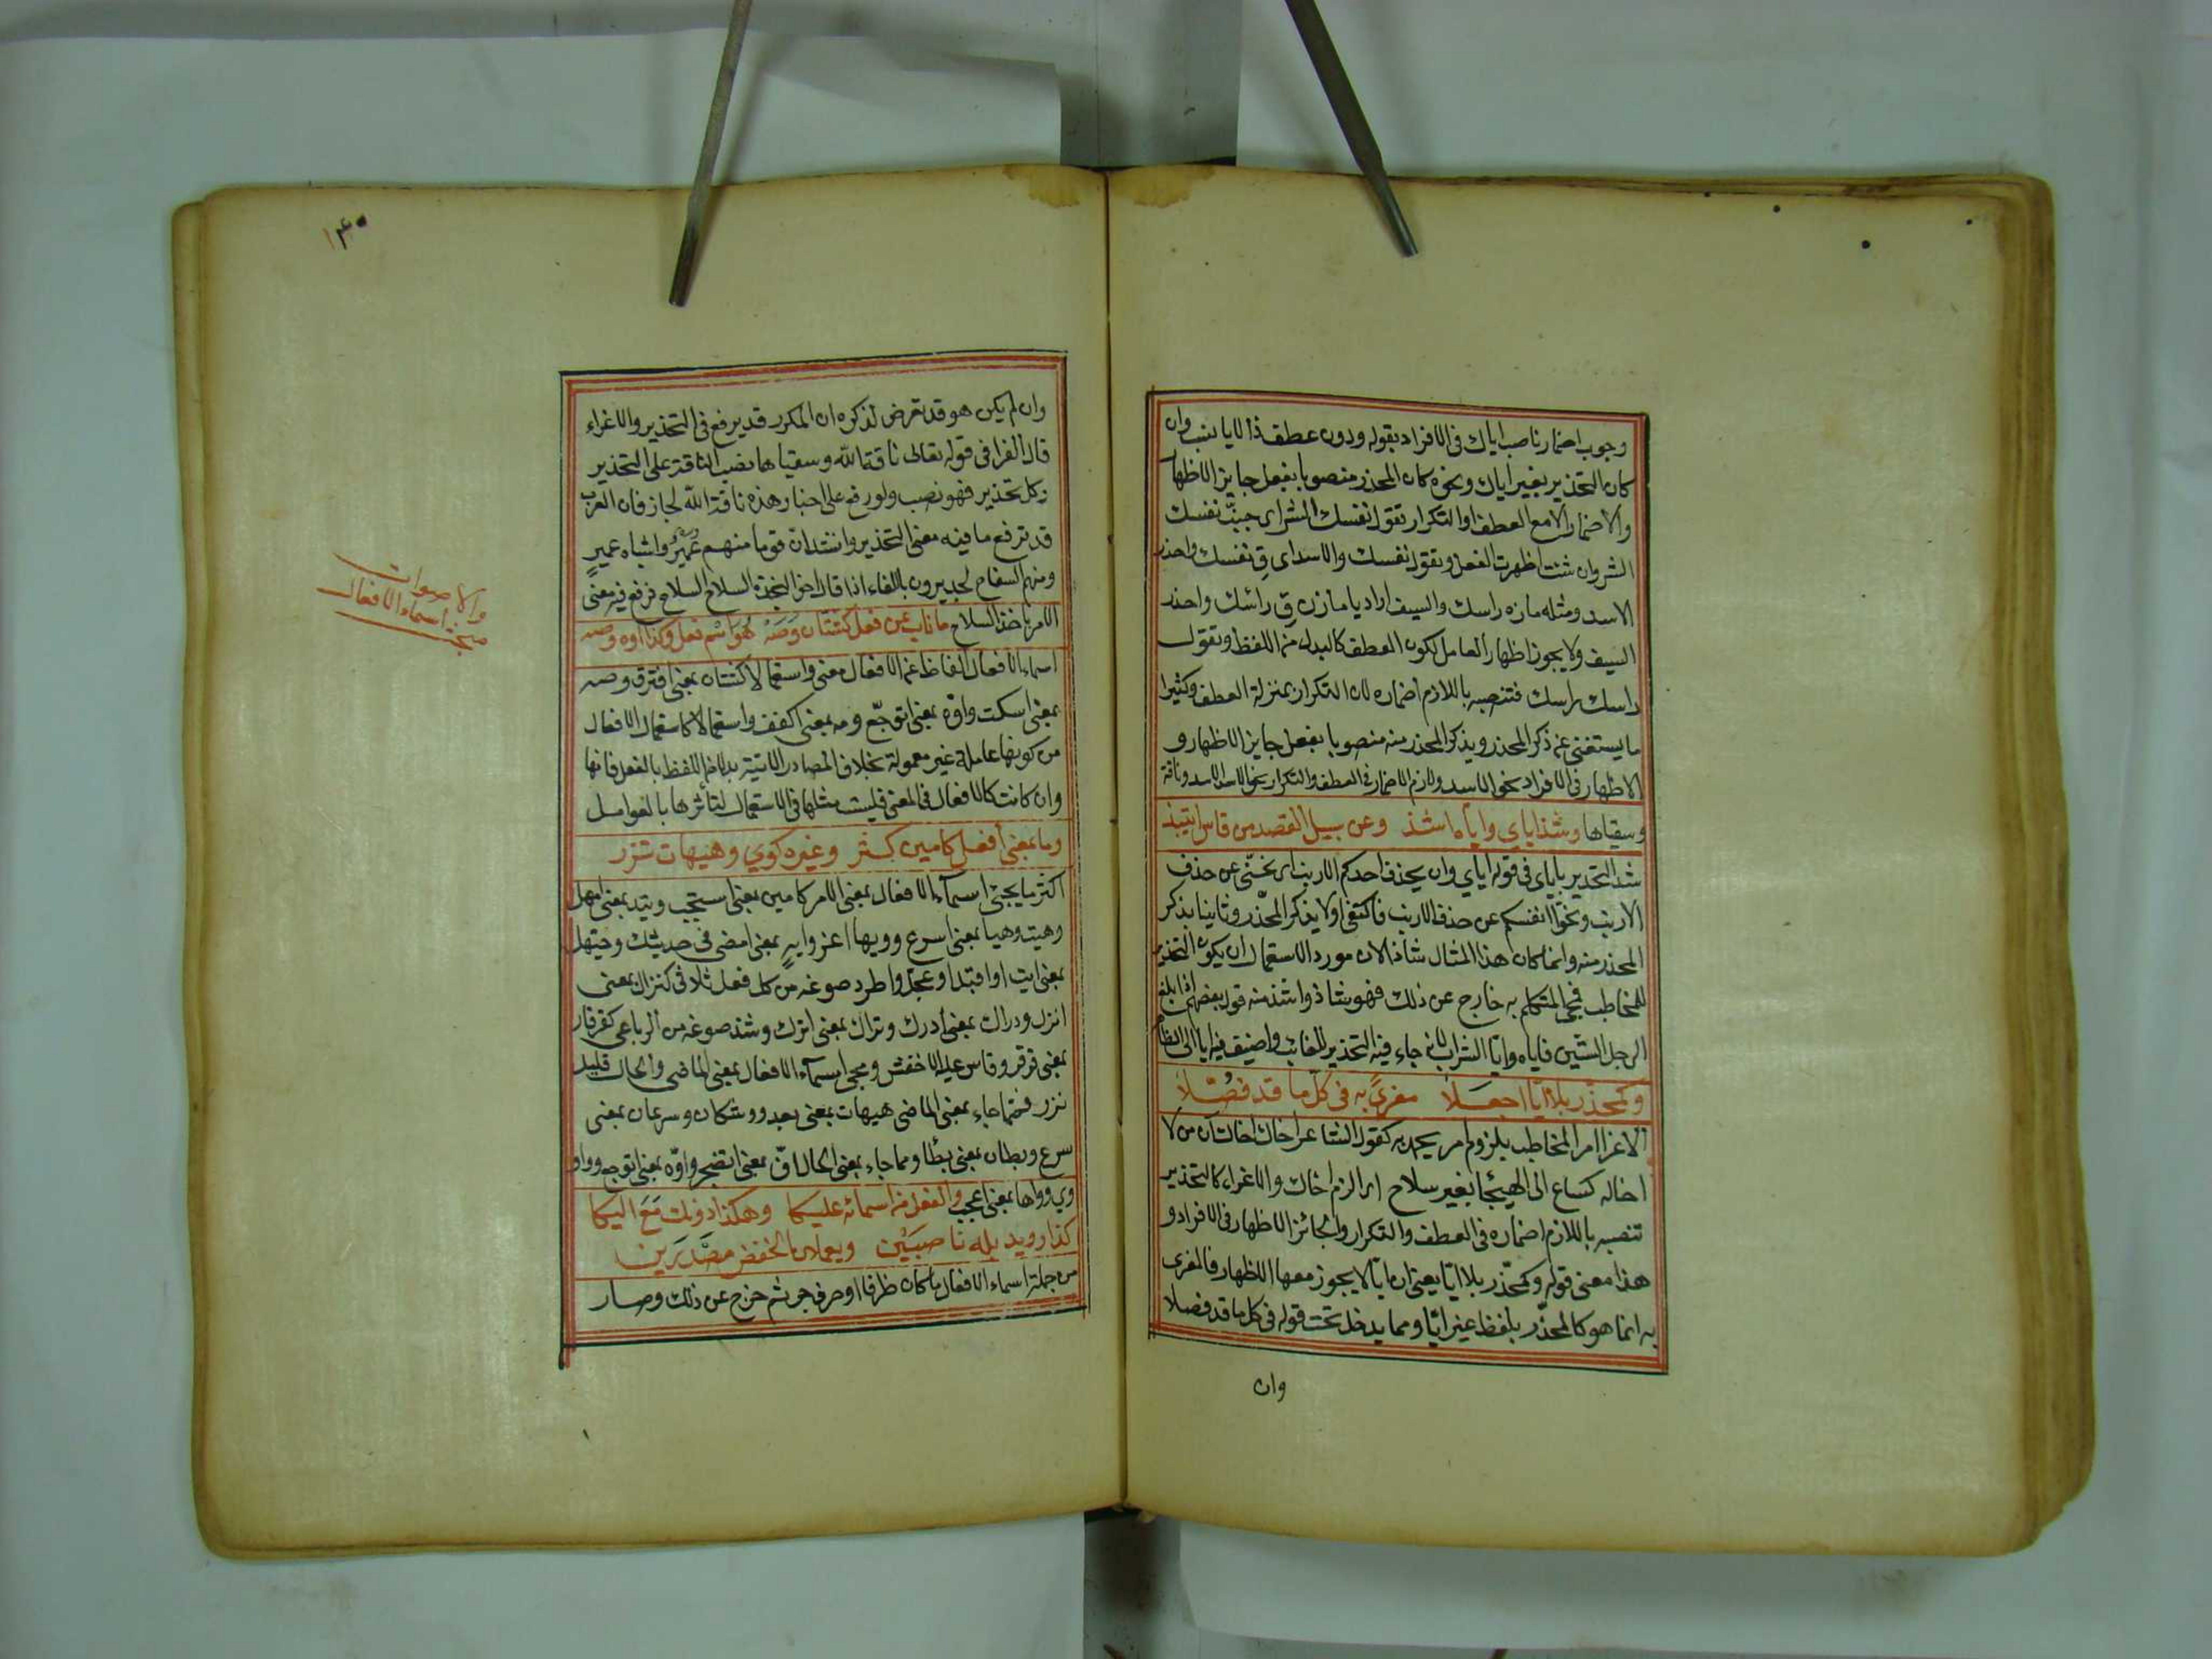 وجوب اضمار ناصب اياك فى الافراد بقوله ودون عطف ذا لايا انسب وان
كان التحذير بغير اياك ونحوه كان المحذر منصوبا بفعل جايز الاظهار
والاضمار الا مع العطف او التكرار تقول نفسك الشر اى جنب نفسك
الشر وان شئت اظهرت الفعل وتقول نفسك والاسد اى ق نفسك واحذر
الاسد ومثله ماز راسك والسيف اراد يا مازن ق راسك واحذر
السيف ولا يجوز اظهار العامل لكون العطف كالبدل من اللفظ وتقول
راسك راسك فتنصبه باللازم اضماره لان التكرار بمنزلة العطف وكثيرا
ما يستغنى عن ذكر المحذر ويذكر المحذر منه منصوبا بفعل جايز الاظهار و
الاظهار فى الافراد نحو الاسد ولازم الاضمار فى العطف والتكرار نحو الاسد الاسد وناقة
وسقياها وشذ اياي واياه اشذ وعن سبيل القصد من قاس انتبذ
شذ التحذير باياى فى قوله اياي وان يحذف احدكم الارنب اى نحنى عن حذف
الارنب ونحوا انفسكم عن حذف الارنب فاكتفى اولا بذكر المحذر وثانيا بذكر
المحذر منه وانما كان هذا المثال شاذا لان مورد الاستعمال ان يكون التحذير
للمخاطب فمجئ المتكلم به خارج عن ذلك فهو شاذ واشذ منه قول بعضهم اذا بلغ
الرجل الستين فاياه وايا الشراب لانه جاء فيه التحذير للغائب واضيف فيه ايا الى الظاهر
وكمحذر بلا ايا اجعلا مغرى به فى كل ما قد فصلا
الاغرا امر المخاطب بلزوم امر يحمد به كقول الشاعر اخاك اخاك ان من لا
اخاله كساع الى الهيجا بغير سلاح اى الزم اخاك والاغراء كالتحذير
تنصبه باللازم اضماره فى العطف والتكرار والجائز الاظهار فى الافراد و
هذا معنى قوله وكمحذر بلا ايا يعنى ان ايا لا يجوز معها الاظهار فالمغرى
به انما هو كالمحذر بلفظ غير ايا ومما يدخل تحت قوله فى كل ما قد فصلا
وان
١٤٠
وان لم يكن هو قد تعرض لذكره ان المكرر قد يرفع فى التحذير والاغراء
قال الفرا فى قوله تعالى ناقة الله وسقياها نصب الناقة على التحذير
وكل تحذير فهو نصب ولو رفع على اضمار هذه ناقة الله لجاز فان العرب
قد ترفع ما فيه معنى التحذير وانشد ان قوما منهم عمير واشباه عمير
ومنهم السفاح لجديرون باللقاء اذا قال اخو النجدة السلاح السلاح فرفع فيه معنى
الامر باخذ السلاح ما ناب عن فعل كشتان وصه هو اسم فعل وكذا اوه ومه
اسماء الافعال الفاظ عن الافعال معنى واستعمالا كشتان بمعنى افترق وصه
بمعنى اسكت واوه بمعنى اتوجع ومه بمعنى اكفف واستعمالا كاستعمال الافعال
من كونها عاملة غير معمولة بخلاف المصادر الاتية بدلا من اللفظ بالفعل فانها
وان كانت كالافعال فى المعنى فليست مثلها فى الاستعمال لتأثرها بالعوامل
وما بمعنى افعل كامين كثر وغيره كوي وهيهات نزر
اكثر ما يجئ اسماء الافعال بمعنى الامر كامين بمعنى استجب وتيد بمعنى امهل
وهيت وهيا بمعنى اسرع وويها اغر وايه بمعنى امض فى حديثك وحيهل
بمعنى ايت او اقبل او عجل واطرد صوغه من كل فعل ثلاثى كنزال بمعنى
انزل ودراك بمعنى ادرك وتراك بمعنى اترك وشذ صوغه من الرباعي كقرقار
بمعنى قرقر وقاس عليه الاخفش ومجئ اسماء الافعال بمعنى الماضى والحال قليل
نزر فمما جاء بمعنى الماضى هيهات بمعنى بعد ووشكان وسرعان بمعنى
سرع وبطان بمعنى بطأ ومما جاء بمعنى الحال اف بمعنى اتضجر واوه بمعنى اتوجع ووا و
وي وواها بمعنى اعجب والفعل من اسمائه عليكا وهكذا دونك مع اليكا
كذا رويد بله ناصبين ويعملان الخفض مصدرين
من جملة اسماء الافعال ما كان ظرفا او حرف جر ثم خرج عن ذلك وصار
مبحث اسماء الافعال
والاصوات